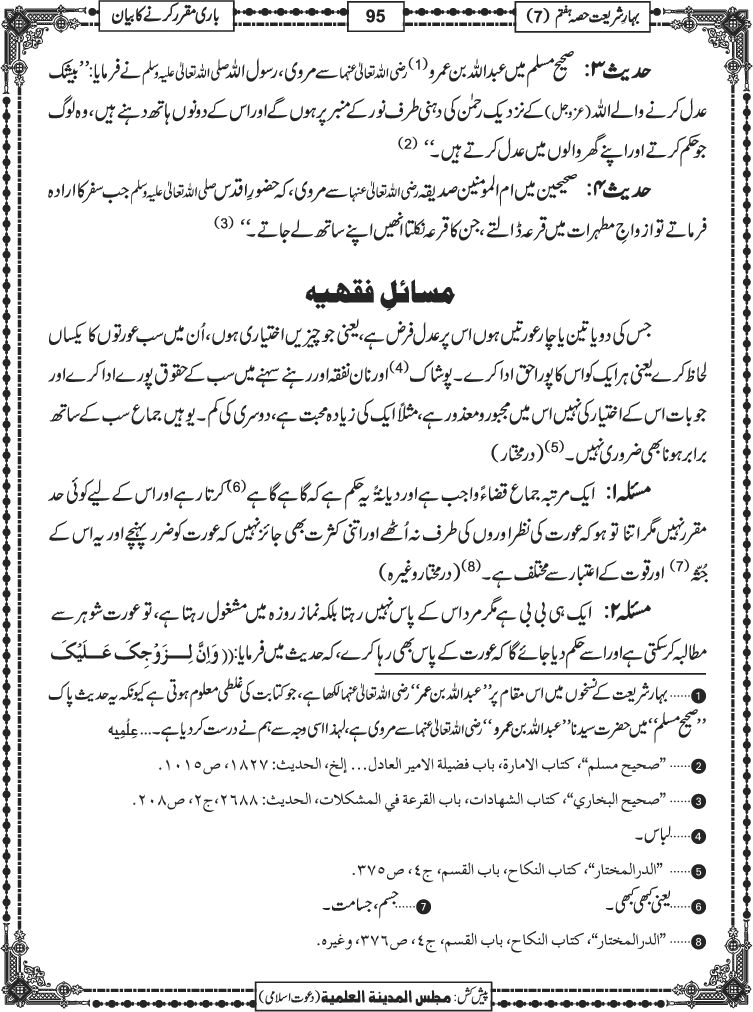 بہارِ شریعت حصہ ہفتم (7)
95
باری مقرر کرنے کا بیان
حدیث ۳: صحیح مسلم میں عبداللہ بن عمرو (1) رضی اللہ تعالیٰ عنہما سے مروی، رسول اللہ صلی اللہ تعالیٰ علیہ وسلم نے فرمایا: ’’بیشک
عدل کرنے والے اللہ (عزوجل) کے نزدیک رحمٰن کی دہنی طرف نور کے منبر پر ہوں گے اور اس کے دونوں ہاتھ دہنے ہیں، وہ لوگ
جو حکم کرتے اور اپنے گھر والوں میں عدل کرتے ہیں۔‘‘ (2)
حدیث ۴: صحیحین میں ام المومنین صدیقہ رضی اللہ تعالیٰ عنہا سے مروی، کہ حضورِ اقدس صلی اللہ تعالیٰ علیہ وسلم جب سفر کا ارادہ
فرماتے تو ازواجِ مطہرات میں قرعہ ڈالتے، جن کا قرعہ نکلتا انھیں اپنے ساتھ لے جاتے۔‘‘ (3)
مسائلِ فقهیه
جس کی دو یا تین یا چار عورتیں ہوں اس پر عدل فرض ہے، یعنی جو چیزیں اختیاری ہوں، اُن میں سب عورتوں کا یکساں
لحاظ کرے یعنی ہر ایک کو اس کا پورا حق ادا کرے۔ پوشاک (4) اور نان نفقہ اور رہنے سہنے میں سب کے حقوق پورے ادا کرے اور
جو بات اس کے اختیار کی نہیں اس میں مجبور و معذور ہے، مثلاً ایک کی زیادہ محبت ہے، دوسری کی کم۔ یوہیں جماع سب کے ساتھ
برابر ہونا بھی ضروری نہیں۔ (5) (درمختار)
مسئلہ ۱: ایک مرتبہ جماع قضاءً واجب ہے اور دیانۃً یہ حکم ہے کہ گاہے گاہے (6) کرتا رہے اور اس کے لیے کوئی حد
مقرر نہیں مگر اتنا تو ہو کہ عورت کی نظر اوروں کی طرف نہ اُٹھے اور اتنی کثرت بھی جائز نہیں کہ عورت کو ضرر پہنچے اور یہ اس کے
جُثّہ (7) اور قوت کے اعتبار سے مختلف ہے۔ (8) (درمختار وغیرہ)
مسئلہ ۲: ایک ہی بی بی ہے مگر مرد اس کے پاس نہیں رہتا بلکہ نماز روزہ میں مشغول رہتا ہے، تو عورت شوہر سے
مطالبہ کر سکتی ہے اور اسے حکم دیا جائے گا کہ عورت کے پاس بھی رہا کرے، کہ حدیث میں فرمایا: (( وَاِنَّ لِـزَوْجِکَ عَـلَـیْکَ
1 ...... بہارِ شریعت کے نسخوں میں اس مقام پر ’’عبداللہ بن عمر‘‘ رضی اللہ تعالیٰ عنہما لکھا ہے، جو کتابت کی غلطی معلوم ہوتی ہے کیونکہ یہ حدیث پاک
’’صحیح مسلم‘‘ میں حضرت سیدنا ’’عبداللہ بن عمرو‘‘ رضی اللہ تعالیٰ عنہما سے مروی ہے، لہذا اسی وجہ سے ہم نے درست کر دیا ہے۔... عِلْمِیه
2 ...... ’’صحیح مسلم‘‘، کتاب الامارة، باب فضیلة الامیر العادل... إلخ، الحدیث: ١٨٢٧، ص١٠١٥.
3 ...... ’’صحیح البخاري‘‘، کتاب الشهادات، باب القرعة في المشکلات، الحدیث: ٢٦٨٨، ج٢، ص٢٠٨.
4 ...... لباس۔
5 ...... ’’الدرالمختار‘‘، کتاب النکاح، باب القسم، ج٤، ص٣٧٥.
6 ...... یعنی کبھی کبھی۔ 7 ...... جسم، جسامت۔
8 ...... ’’الدرالمختار‘‘، کتاب النکاح، باب القسم، ج٤، ص٣٧٦، وغیره.
پیش کش: مجلس المدینة العلمیة (دعوتِ اسلامی)